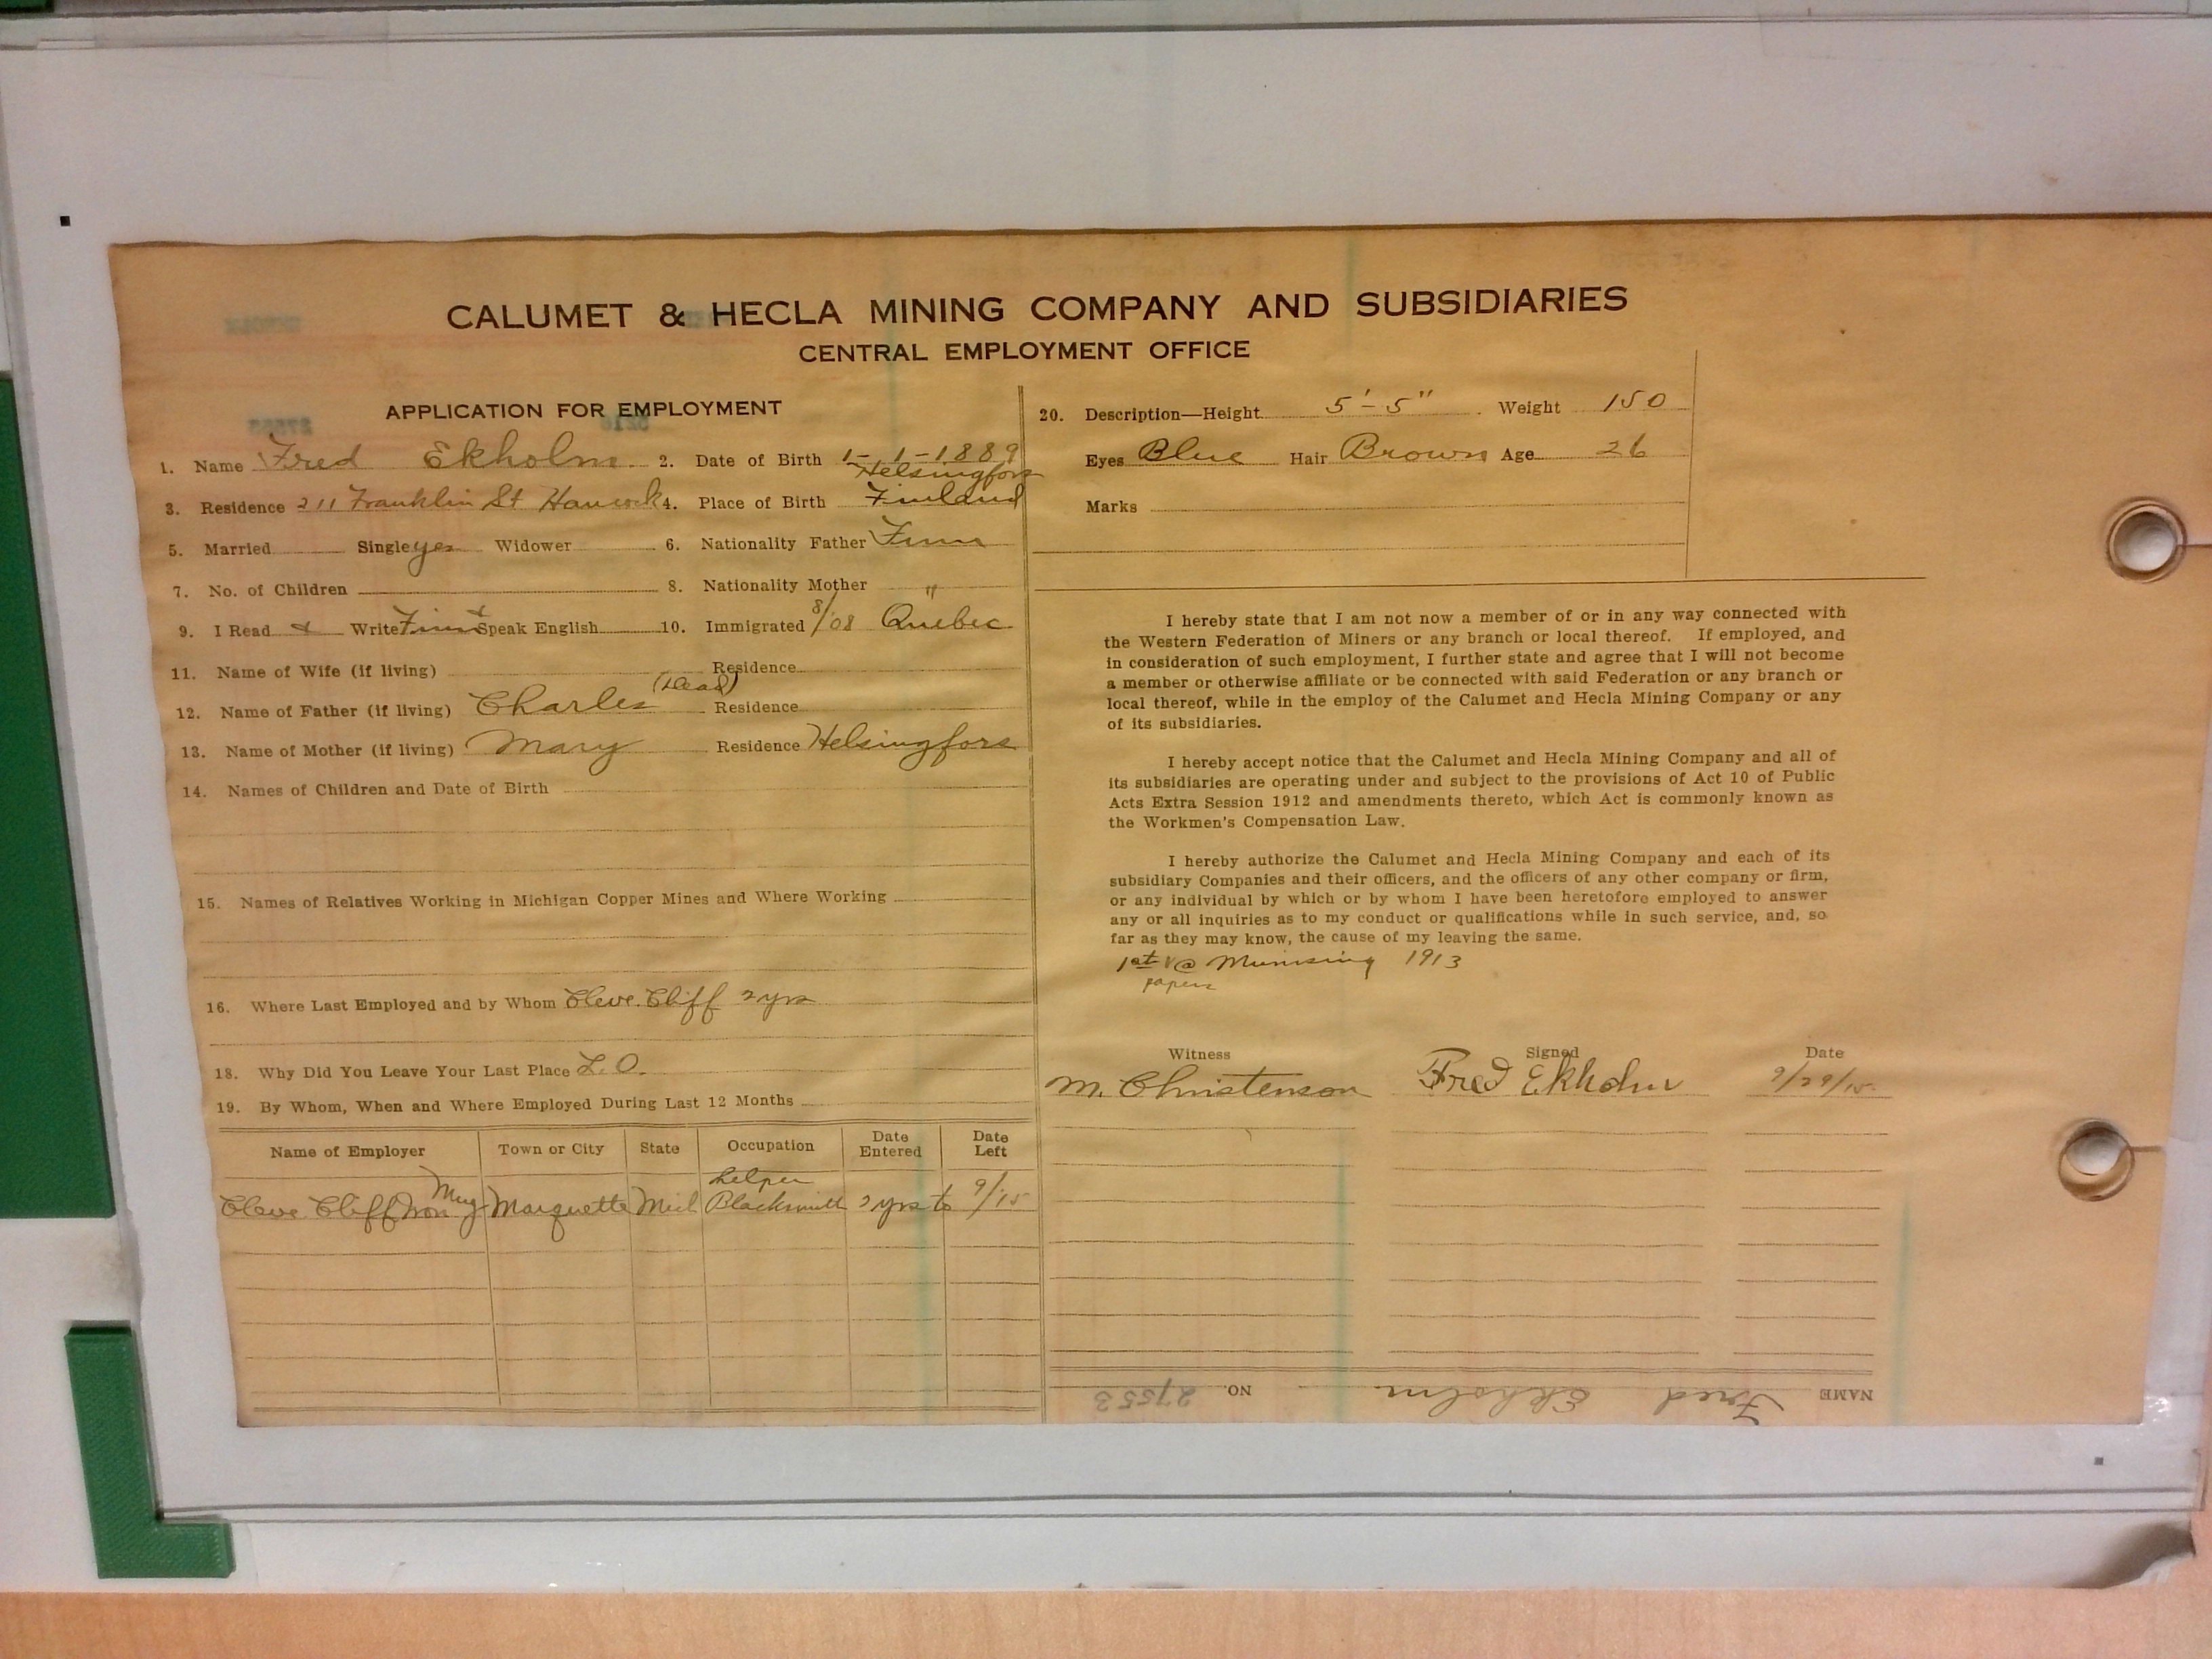 CALUMET & HECLA MINING COMPANY AND SUBSIDIARIES
CENTRAL EMPLOYMENT OFFICE
APPLICATION FOR EMPLOYMENT
1. Name Fred Ekholm 2. Date of Birth 1-1-1889
Helsingfors
3. Residence 211 Franklin St Hancock 4. Place of Birth Finland
5. Married Single yes Widower 6. Nationality Father Finn
7. No. of Children 8. Nationality Mother "
9. I Read & Write Finn & Speak English 10. Immigrated 8/08 Quebec
11. Name of Wife (if living) Residence
12. Name of Father (if living) Charles (Dead) Residence
13. Name of Mother (if living) Mary Residence Helsingfors
14. Names of Children and Date of Birth
15. Names of Relatives Working in Michigan Copper Mines and Where Working
16. Where Last Employed and by Whom Cleve. Cliff 2 yrs
18. Why Did You Leave Your Last Place L.O.
19. By Whom, When and Where Employed During Last 12 Months
Name of Employer Town or City State Occupation Date Entered Date Left
helper
Cleve Cliff Iron Mng Marquette Mich Blacksmith 2 yrs to 9/15
20. Description—Height 5'-5" Weight 150
Eyes Blue Hair Brown Age 26
Marks
I hereby state that I am not now a member of or in any way connected with
the Western Federation of Miners or any branch or local thereof. If employed, and
in consideration of such employment, I further state and agree that I will not become
a member or otherwise affiliate or be connected with said Federation or any branch or
local thereof, while in the employ of the Calumet and Hecla Mining Company or any
of its subsidiaries.
I hereby accept notice that the Calumet and Hecla Mining Company and all of
its subsidiaries are operating under and subject to the provisions of Act 10 of Public
Acts Extra Session 1912 and amendments thereto, which Act is commonly known as
the Workmen's Compensation Law.
I hereby authorize the Calumet and Hecla Mining Company and each of its
subsidiary Companies and their officers, and the officers of any other company or firm,
or any individual by which or by whom I have been heretofore employed to answer
any or all inquiries as to my conduct or qualifications while in such service, and, so
far as they may know, the cause of my leaving the same.
1st @ Munising 1913
papers
Witness Signed Date
M. Christenson Fred Ekholm 9/29/15
NAME Fred Ekholm NO. 27553